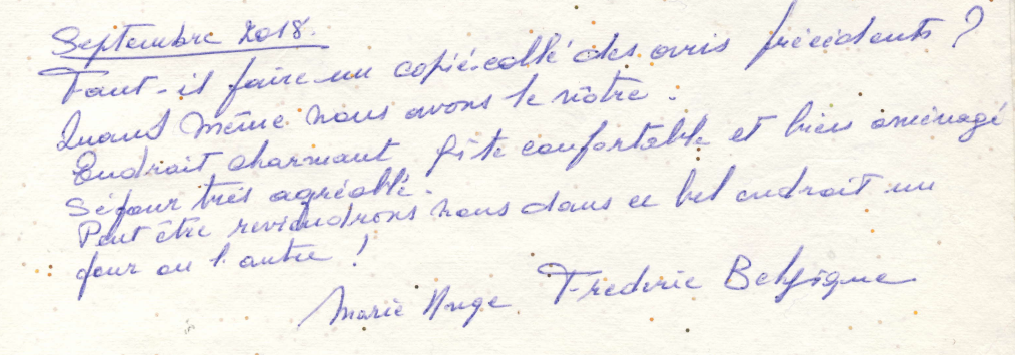 Septembre 2018.
Faut-il faire un copié-collé des avis précédents ?
Quand même nous avons le nôtre.
Endroit charmant gîte confortable et bien aménagé
Séjour très agréable.
Peut être reviendrons nous dans ce bel endroit un
jour ou l'autre !
Marie Ange Frederic Belgique